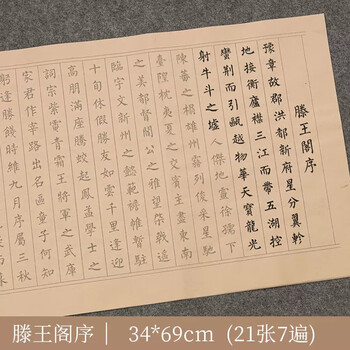 滕王閣序
豫章故郡洪都新府星分翼軫
地接衡廬襟三江而帶五湖控
蠻荆而引甌越物華天寶龍光
射牛斗之墟人傑地靈徐孺下
陳蕃之榻雄州霧列俊采星馳
臺隍枕夷夏之交賓主盡東南
之美都督閻公之雅望棨戟遥
臨宇文新州之懿範襜帷暫駐
十旬休假勝友如雲千里逢迎
高朋滿座騰蛟起鳳孟學士之
詞宗紫電青霜王將軍之武庫
家君作宰路出名區童子何知
躬逢勝餞時維九月序屬三秋
滕王阁序｜ 34*69cm (21张7遍)